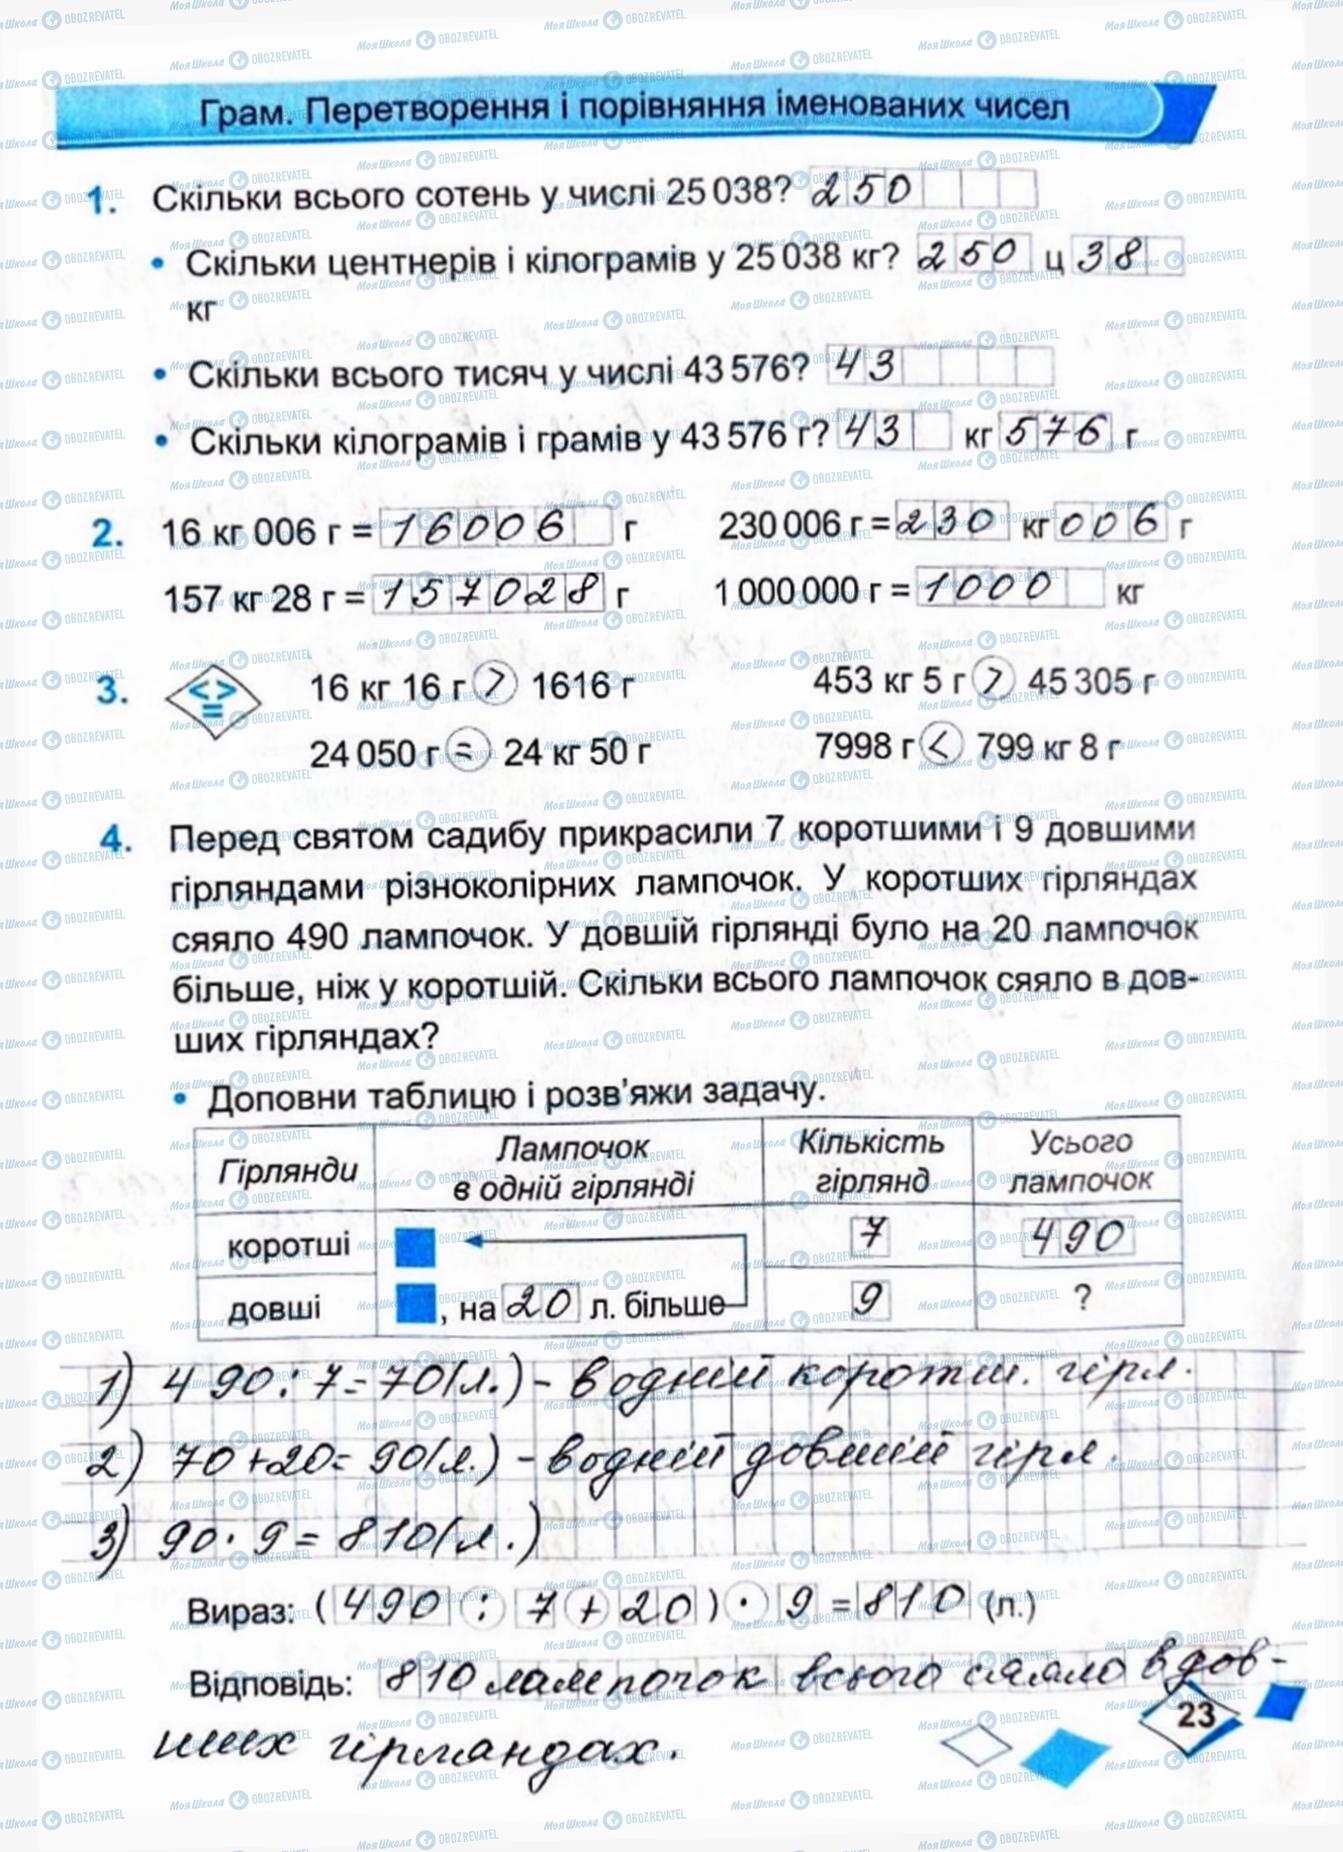 Грам. Перетворення і порівняння іменованих чисел
1. Скільки всього сотень у числі 25 038? 250
• Скільки центнерів і кілограмів у 25 038 кг? 250 ц 38
кг
• Скільки всього тисяч у числі 43 576? 43
• Скільки кілограмів і грамів у 43 576 г? 43 кг 576 г
2. 16 кг 006 г = 16006 г 230 006 г = 230 кг 006 г
157 кг 28 г = 157028 г 1 000 000 г = 1000 кг
3. < > = 16 кг 16 г > 1616 г 453 кг 5 г > 45 305 г
24 050 г = 24 кг 50 г 7998 г < 799 кг 8 г
4. Перед святом садибу прикрасили 7 коротшими і 9 довшими
гірляндами різноколірних лампочок. У коротших гірляндах
сяяло 490 лампочок. У довшій гірлянді було на 20 лампочок
більше, ніж у коротшій. Скільки всього лампочок сяяло в дов-
ших гірляндах?
• Доповни таблицю і розв'яжи задачу.
Гірлянди Лампочок в одній гірлянді Кількість гірлянд Усього лампочок
коротші 7 490
довші , на 20 л. більше 9 ?
1) 490 : 7 = 70 (л.) - в одній коротш. гірл.
2) 70 + 20 = 90 (л.) - в одній довшій гірл.
3) 90 · 9 = 810 (л.)
Вираз: (490 : 7 + 20) · 9 = 810 (л.)
Відповідь: 810 лампочок всього сяяло в дов-
ших гірляндах.
23
МояШкола OBOZREVATEL